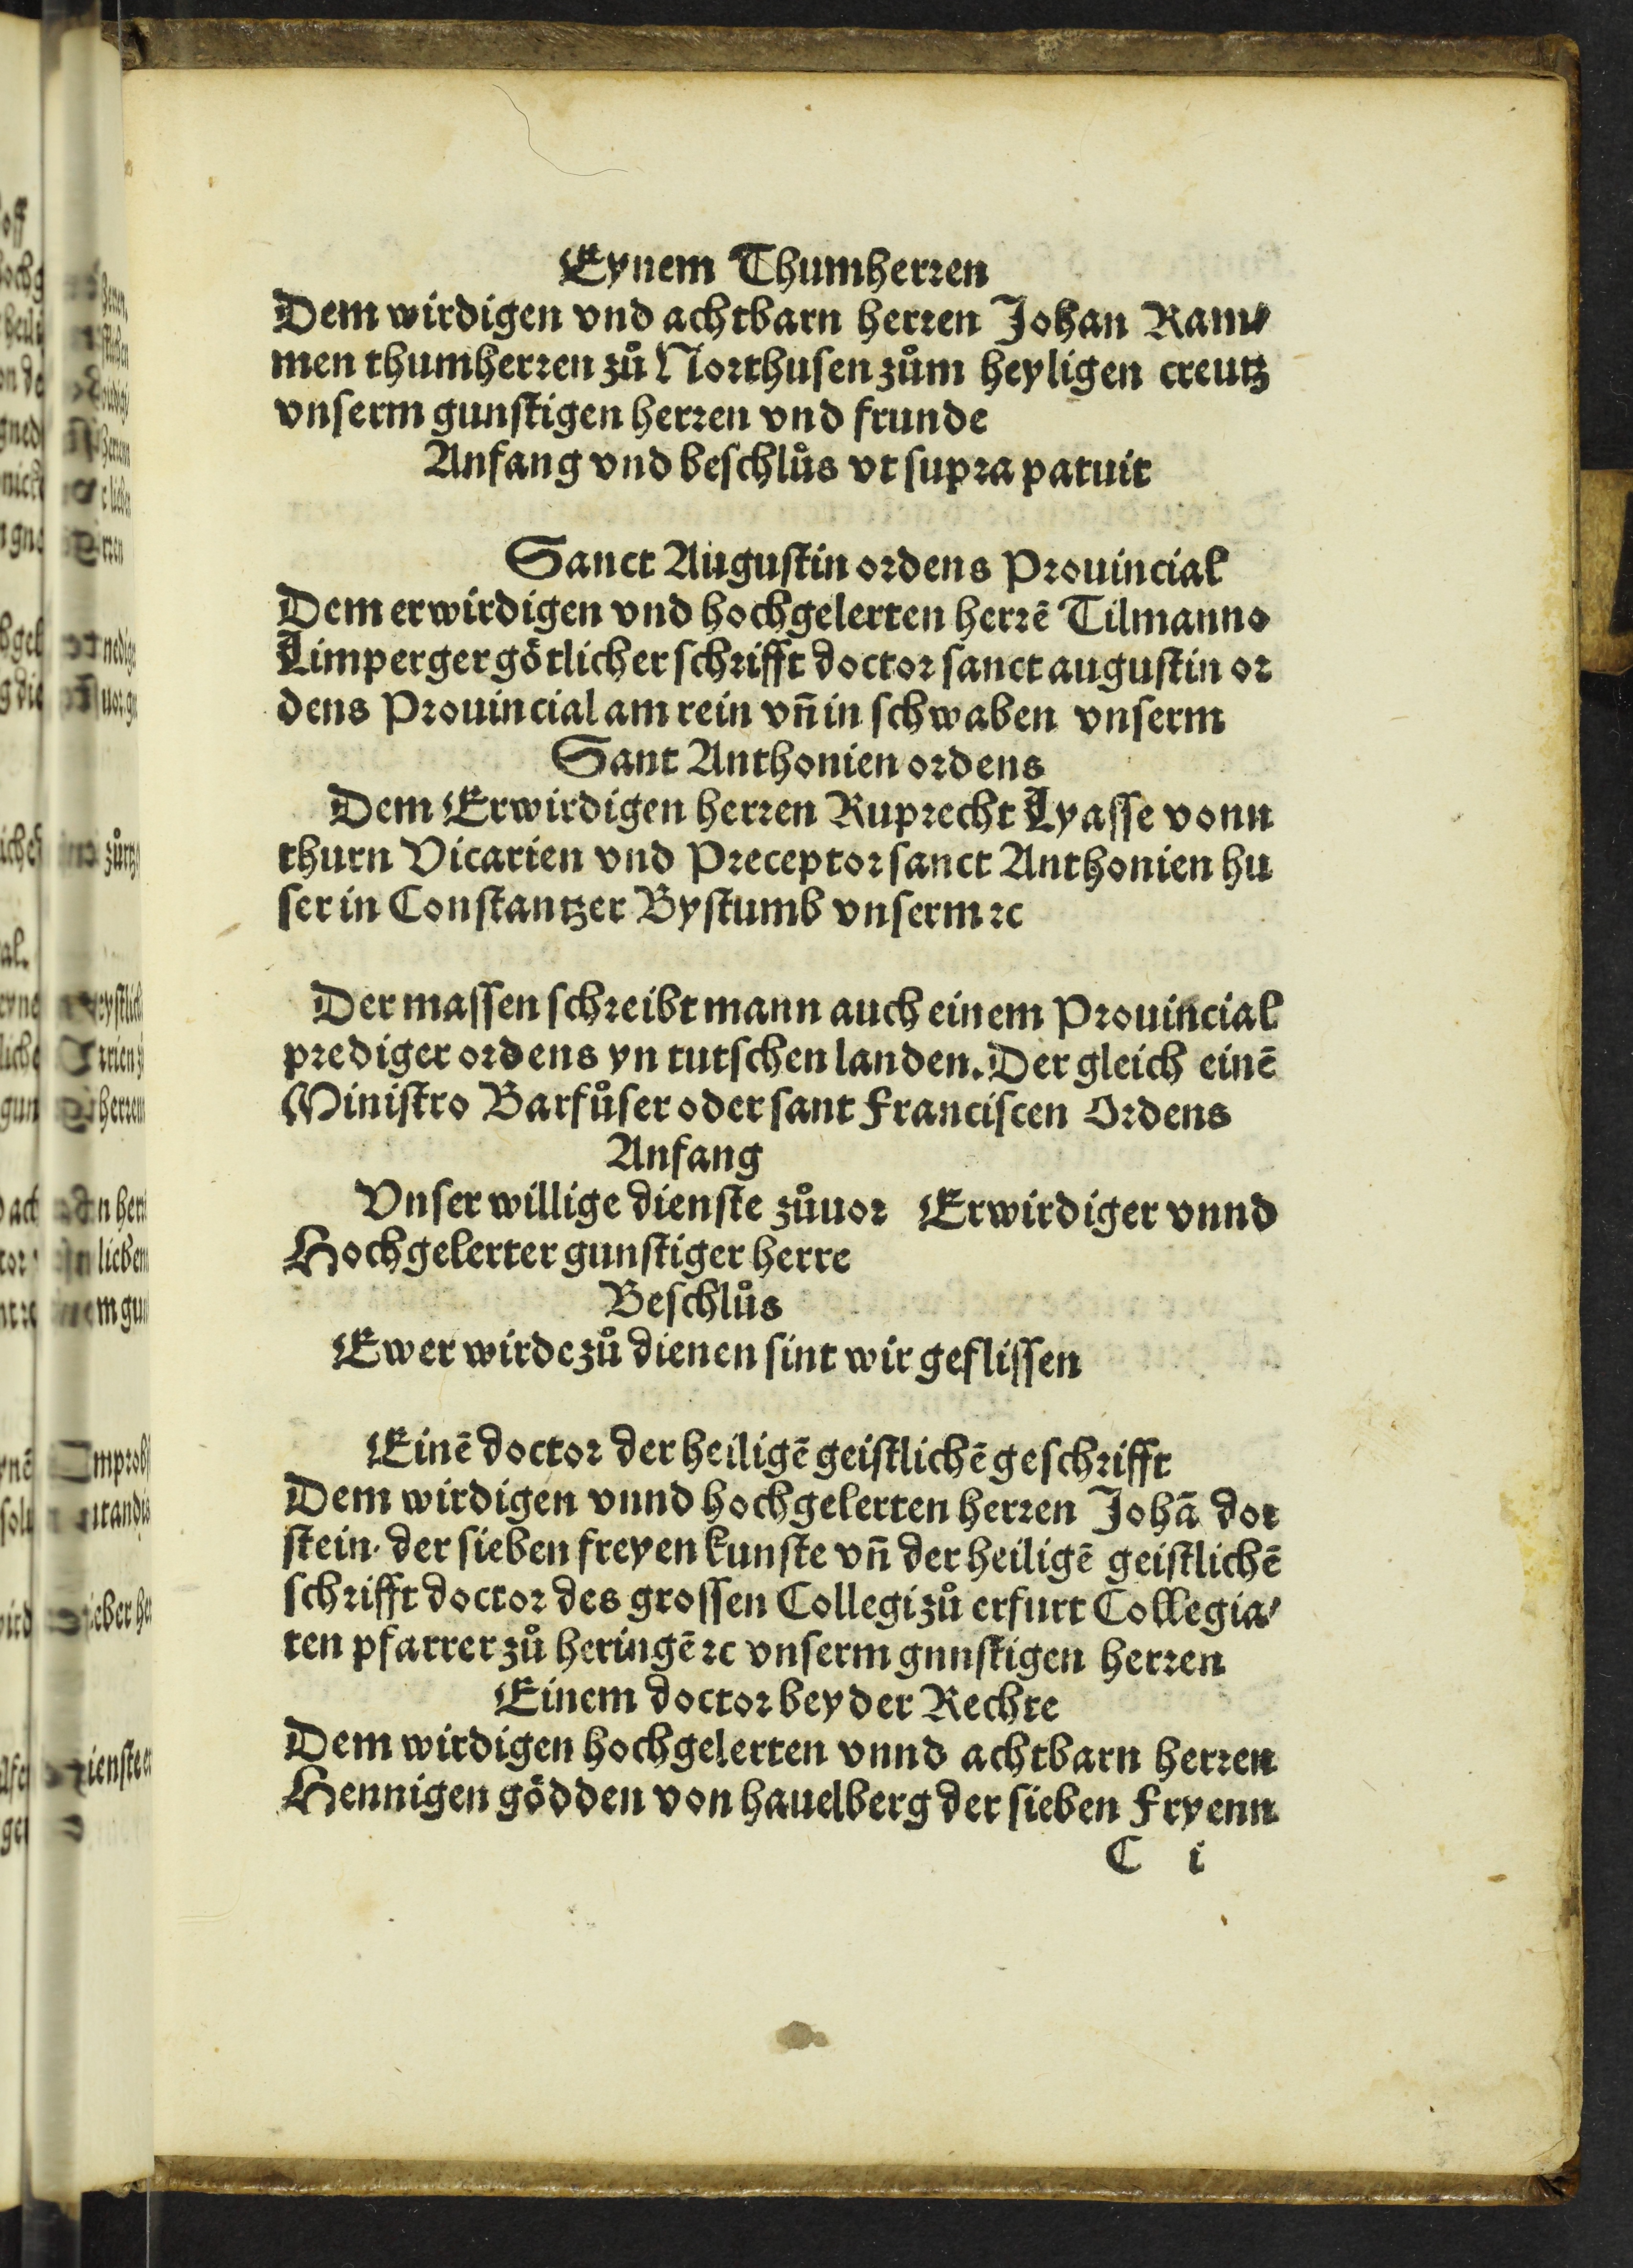 Eynem Thumherren
Dem wirdigen vnd achtbarn herren Johan Ram⸗
men thumherren zů Northusen zům heyligen creutz
vnserm gunstigen herren vnd frunde
Anfang vnd beschlůs vt supra patuit
Sanct Augustin ordens Prouincial
Dem erwirdigen vnd hochgelerten herrē Tilmanno
Limperger götlicher schrifft doctor sanct augustin or
dens Prouincial am rein vn̄ in schwaben vnserm
Sant Anthonien ordens
Dem Erwirdigen herren Ruprecht Lyasse vonn
thurn Vicarien vnd Preceptor sanct Anthonien hu
ser in Constantzer Bystumb vnserm ⁊c
Der massen schreibt mann auch einem Prouincial
prediger ordens yn tutschen landen. Der gleich einē
Ministro Barfůser oder sant Franciscen Ordens
Anfang
Vnser willige dienste zůuor Erwirdiger vnnd
Hochgelerter gunstiger herre
Beschlůs
Ewer wirde zů dienen sint wir geflissen
Einē doctor der heiligē geistlichē geschrifft
Dem wirdigen vnnd hochgelerten herren Johā dor
stein. der sieben freyen kunste vn̄ der heiligē geistlichē
schrifft doctor des grossen Collegi zů erfurt Collegia⸗
ten pfarrer zů heringē ⁊c vnserm gnnstigen herren
Einem doctor beyder Rechte
Dem wirdigen hochgelerten vnnd achtbarn herren
Hennigen gödden von hauelberg der sieben Fryenn
C i